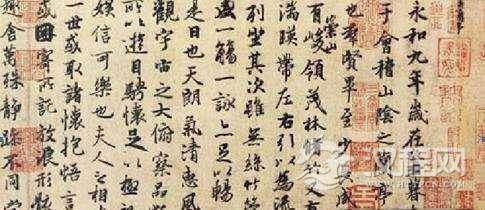 永和九年歲在
于會稽山陰之蘭亭
也羣賢畢至少長咸
有崇山峻領茂林脩竹
湍暎帶左右引以為流
列坐其次雖無絲竹
盛一觴一詠亦足以暢
是日也天朗氣清惠風
觀宇宙之大俯察品類
所以遊目騁懷足以極
娛信可樂也夫人之相與
一世或取諸懷抱悟言
或因寄所託放浪形骸
趣舍萬殊靜躁不同當